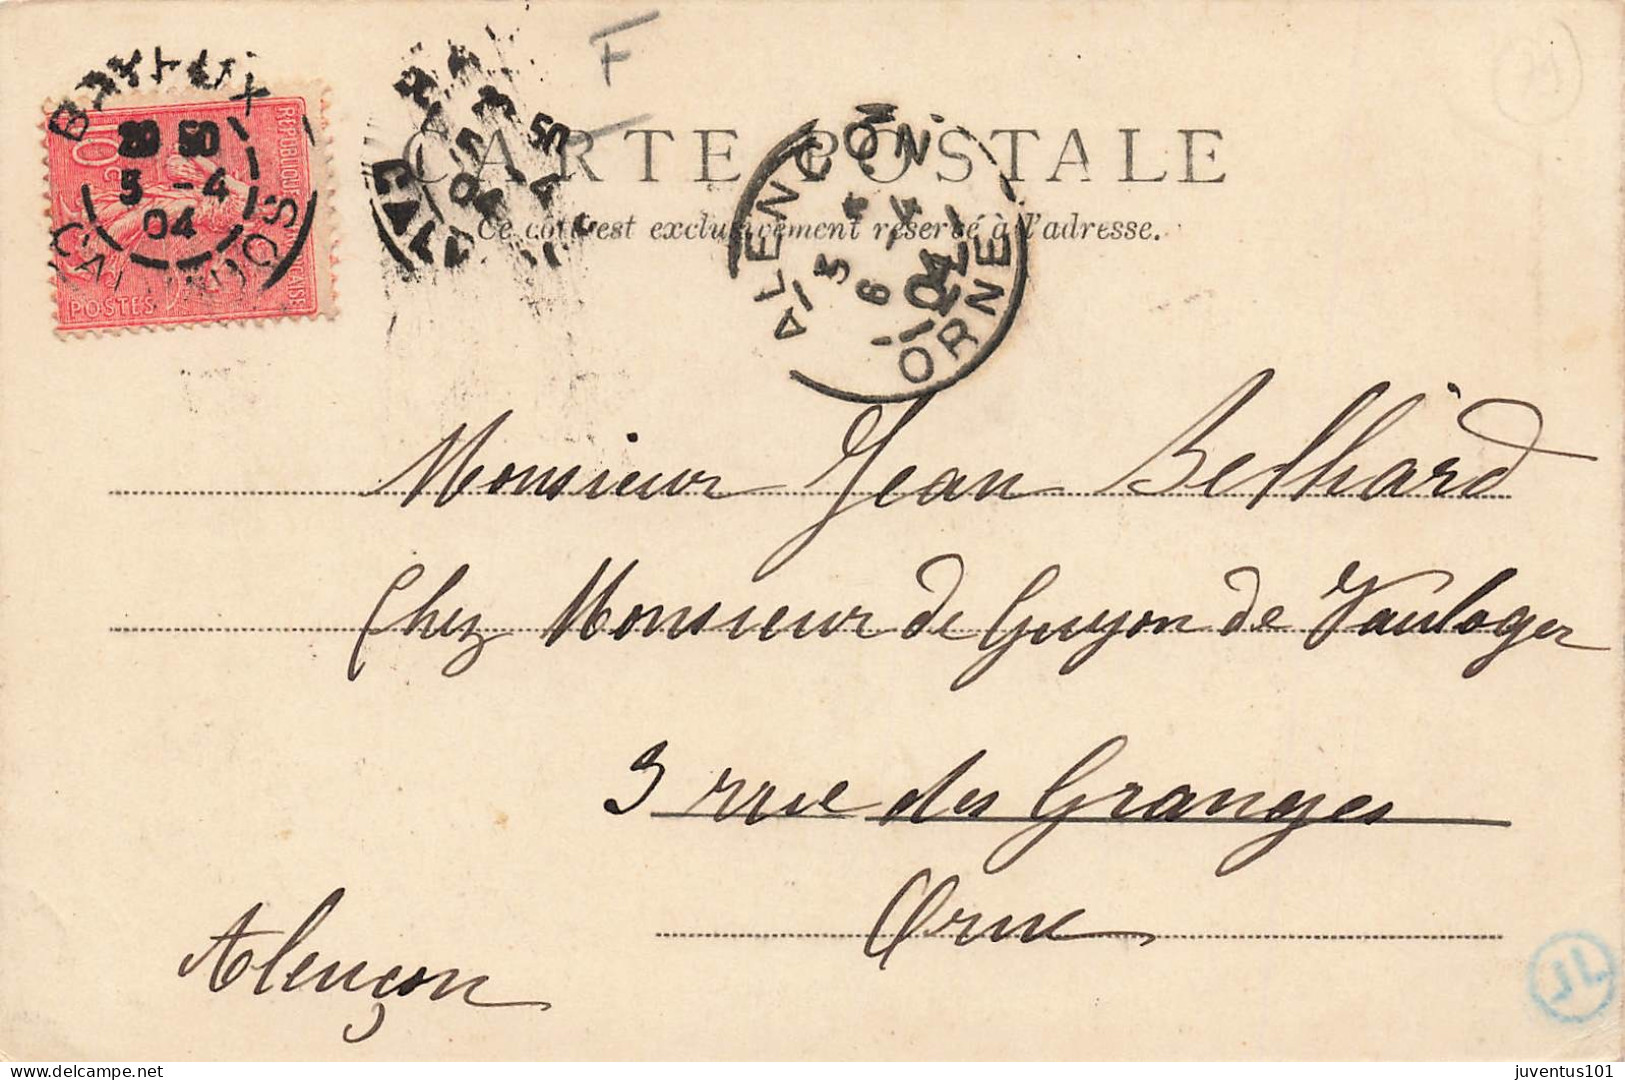 F
CARTE POSTALE
Ce côté est exclusivement réservé à l'adresse.
RÉPUBLIQUE FRANÇAISE
10c
POSTES
BAYEUX
20 50
5 -4
04
CALVADOS
ALENCON
5 4
6 -4
04
ORNE
Monsieur Jean Belhârd
Chez Monsieur de Guyon de Vauloger
3 rue des Granges
Orne
Alençon
JL
www.delcampe.net
juventus101